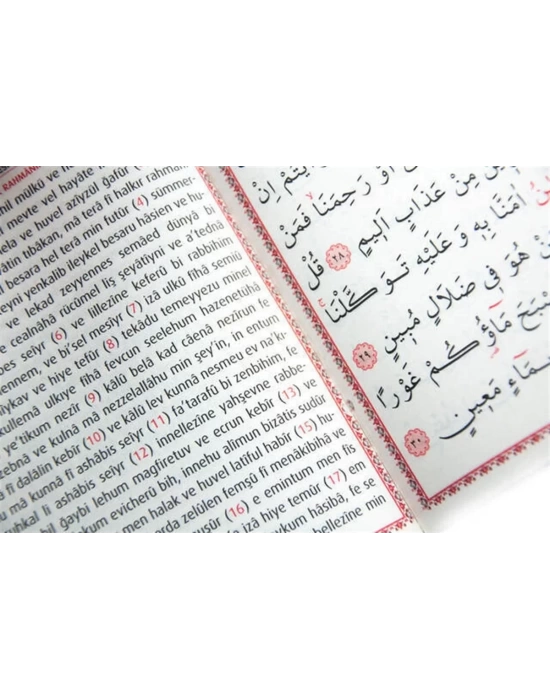 RAHMAN
mülkü ve
meyte vel hayâte
ve huvel azîyzul gafûr
tıbâkan, mâ terâ fî halkır rahman
besara hel terâ min futûr (4) sümmer-
yenkalib ileykel besaru hâsien ve hu-
ve lekad zeyyennes semâed dünyâ bi
ve cealnâhâ rucûmel liş şeyâtiyni ve a'tednâ
seîyr (6) ve lillezîne keferû bi rabbihim
ve bi'sel mesîyr (7) izâ ulkû fîhâ semiû
ve hiye tefûr (8) tekâdu temeyyezu minel
kullemâ ulkıye fîhâ fevcun seelehum hazenetühâ
e'tikum nezîr (9) kâlû belâ kad câenâ nezîrun fe
zebnâ ve kulnâ mâ nezzelallâhu min şey'in, in entum
fî dalâlin kebîr (10) ve kâlû lev kunnâ nesmeu ev na'kı-
mâ kunnâ fî ashâbis seîyr (11) fa'tarafû bi zenbihim, fe
uhkal li ashâbis seîyr (12) innellezîne yahşevne rabbe-
bil ğaybi lehum magfiretuv ve ecrun kebîr (13) ve
evicherû bih, innehu alîmun bizâtis sudûr
men halak ve huvel latîful habîr (15) hu-
arda zelûlen femşû fî menâkibihâ ve
nuşûr (16) e emintum men fis
izâ hiye temûr (17) em
ykum hâsibâ, fe se
bellezîne min
اَوْ رَحِمَنَاۙ فَمَنْ
مِنْ عَذَابٍ اَل۪يمٍ ﴿٢٨﴾ قُلْ
اٰمَنَّا بِه۪ وَعَلَيْهِ تَوَكَّلْنَاۚ
هُوَ ف۪ي ضَلَالٍ مُب۪ينٍ ﴿٢٩﴾
مَٓاؤُ۬كُمْ غَوْرًا
مَع۪ينٍ ﴿٣٠﴾